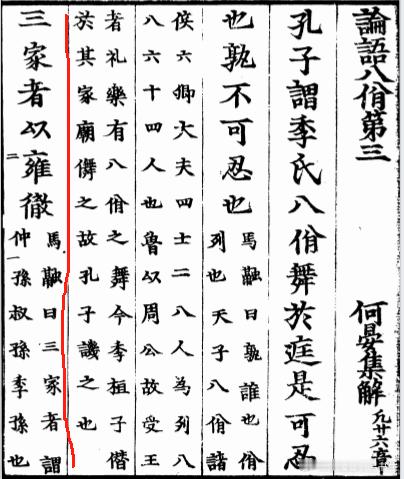 論語八佾第三 何晏集解 凡廿六章
孔子謂季氏八佾舞於庭是可忍
也孰不可忍也
馬融曰孰誰也佾
列也天子八佾諸
侯六卿大夫四士二八人為列八
八六十四人也魯以周公故受王
者礼樂有八佾之舞今季桓子僭
於其家廟儛之故孔子譏之也
三家者以雍徹
馬融曰三家者謂
仲孫叔孫季孫也